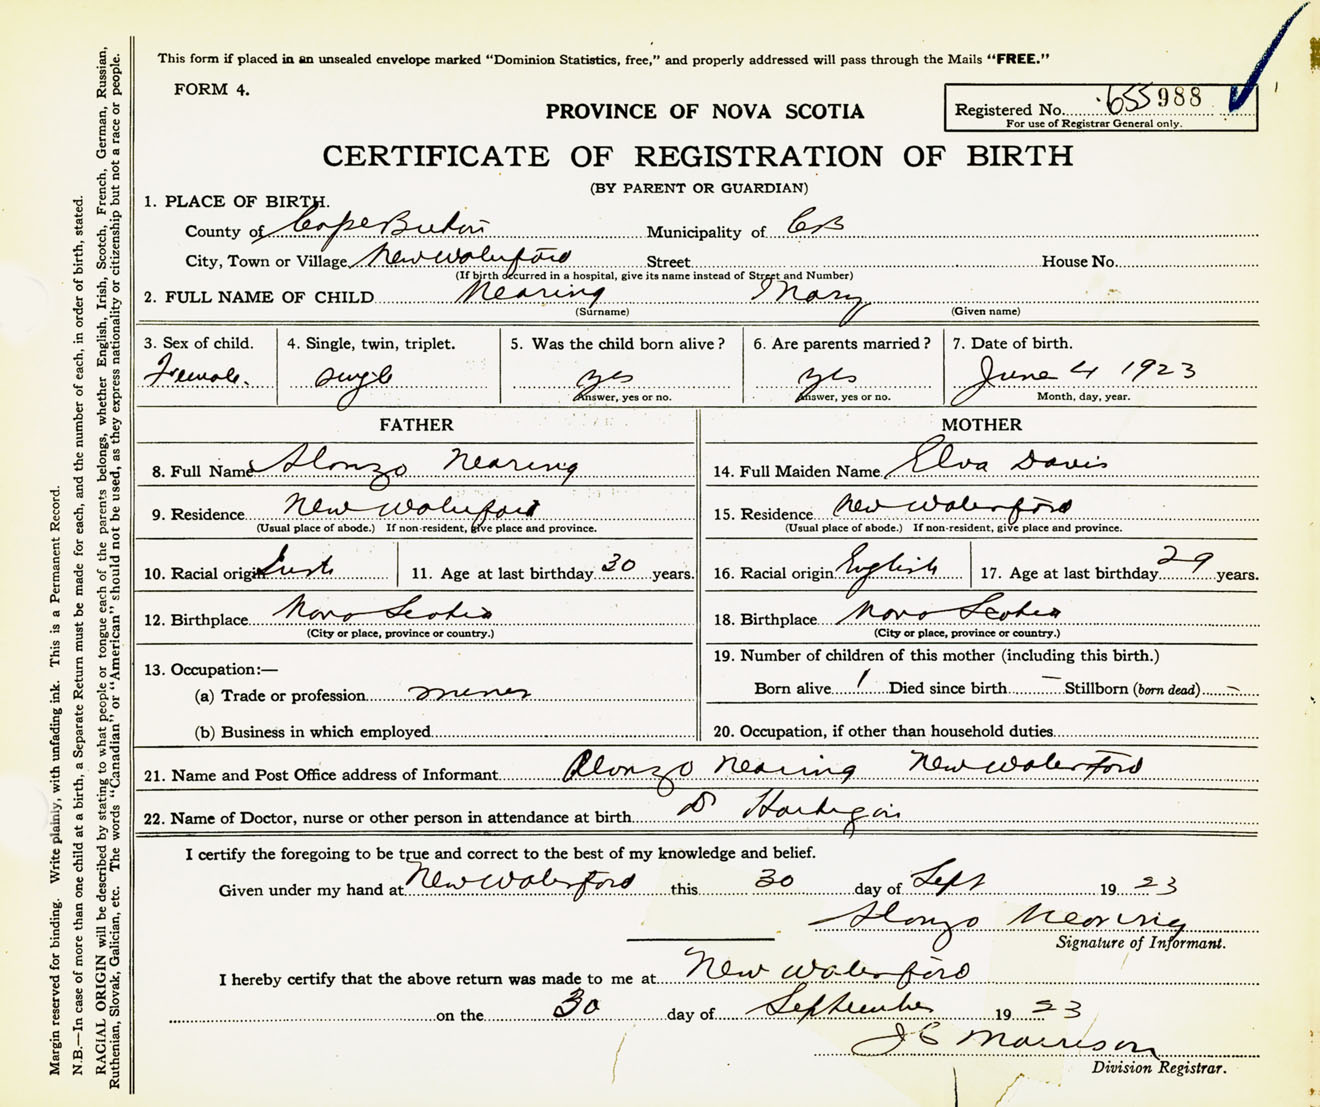 This form if placed in an unsealed envelope marked "Dominion Statistics, free," and properly addressed will pass through the Mails "FREE."
FORM 4.
Registered No. 655988
For use of Registrar General only.
PROVINCE OF NOVA SCOTIA
CERTIFICATE OF REGISTRATION OF BIRTH
(BY PARENT OR GUARDIAN)
1. PLACE OF BIRTH.
County of Cape Breton Municipality of CB
City, Town or Village New Waterford Street House No.
(If birth occurred in a hospital, give its name instead of Street and Number)
2. FULL NAME OF CHILD Nearing Mary
(Surname) (Given name)
3. Sex of child. 4. Single, twin, triplet. 5. Was the child born alive? 6. Are parents married? 7. Date of birth.
Female. single yes yes June 4 1923
Answer, yes or no. Answer, yes or no. Month, day, year.
FATHER MOTHER
8. Full Name Alonzo Nearing 14. Full Maiden Name Elva Davis
9. Residence New Waterford 15. Residence New Waterford
(Usual place of abode.) If non-resident, give place and province. (Usual place of abode.) If non-resident, give place and province.
10. Racial origin Irish 11. Age at last birthday 30 years. 16. Racial origin English 17. Age at last birthday 29 years.
12. Birthplace Nova Scotia 18. Birthplace Nova Scotia
(City or place, province or country.) (City or place, province or country.)
13. Occupation:— 19. Number of children of this mother (including this birth.)
(a) Trade or profession miner Born alive 1 Died since birth — Stillborn (born dead) —
(b) Business in which employed 20. Occupation, if other than household duties
21. Name and Post Office address of Informant Alonzo Nearing New Waterford
22. Name of Doctor, nurse or other person in attendance at birth Dr Hartigan
I certify the foregoing to be true and correct to the best of my knowledge and belief.
Given under my hand at New Waterford this 30 day of Sept 1923
Alonzo Nearing
Signature of Informant.
I hereby certify that the above return was made to me at New Waterford
on the 30 day of September 1923
J C Morrison
Division Registrar.
Margin reserved for binding. Write plainly, with unfading ink. This is a Permanent Record.
N.B.—In case of more than one child at a birth, a Separate Return must be made for each, and the number of each, in order of birth, stated.
RACIAL ORIGIN will be described by stating to what people or tongue each of the parents belongs, whether English, Irish, Scotch, French, German, Russian,
Ruthenian, Slovak, Galician, etc. The words "Canadian" or "American" should not be used, as they express nationality or citizenship but not a race or people.